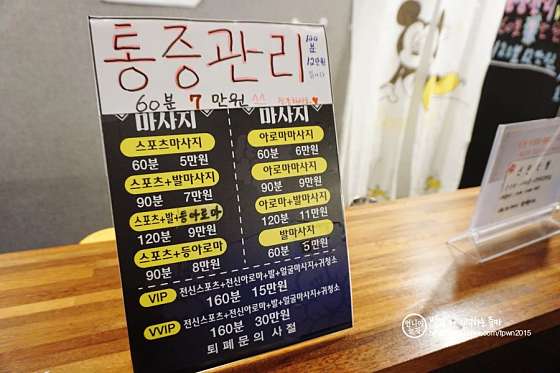 통증관리
100분
12만원
60분 7만원
마사지
스포츠마사지
60분 5만원
스포츠+발마사지
90분 7만원
스포츠+발+등아로마
120분 9만원
스포츠+등아로마
90분 8만원
마사지
아로마마사지
60분 6만원
아로마마사지
90분 9만원
아로마+발마사지
120분 11만원
발마사지
60분 5만원
VIP 전신스포츠+전신아로마+발+얼굴마사지+귀청소
160분 15만원
VVIP 전신스포츠+전신아로마+발+얼굴마사지+귀청소
160분 30만원
퇴폐문의 사절